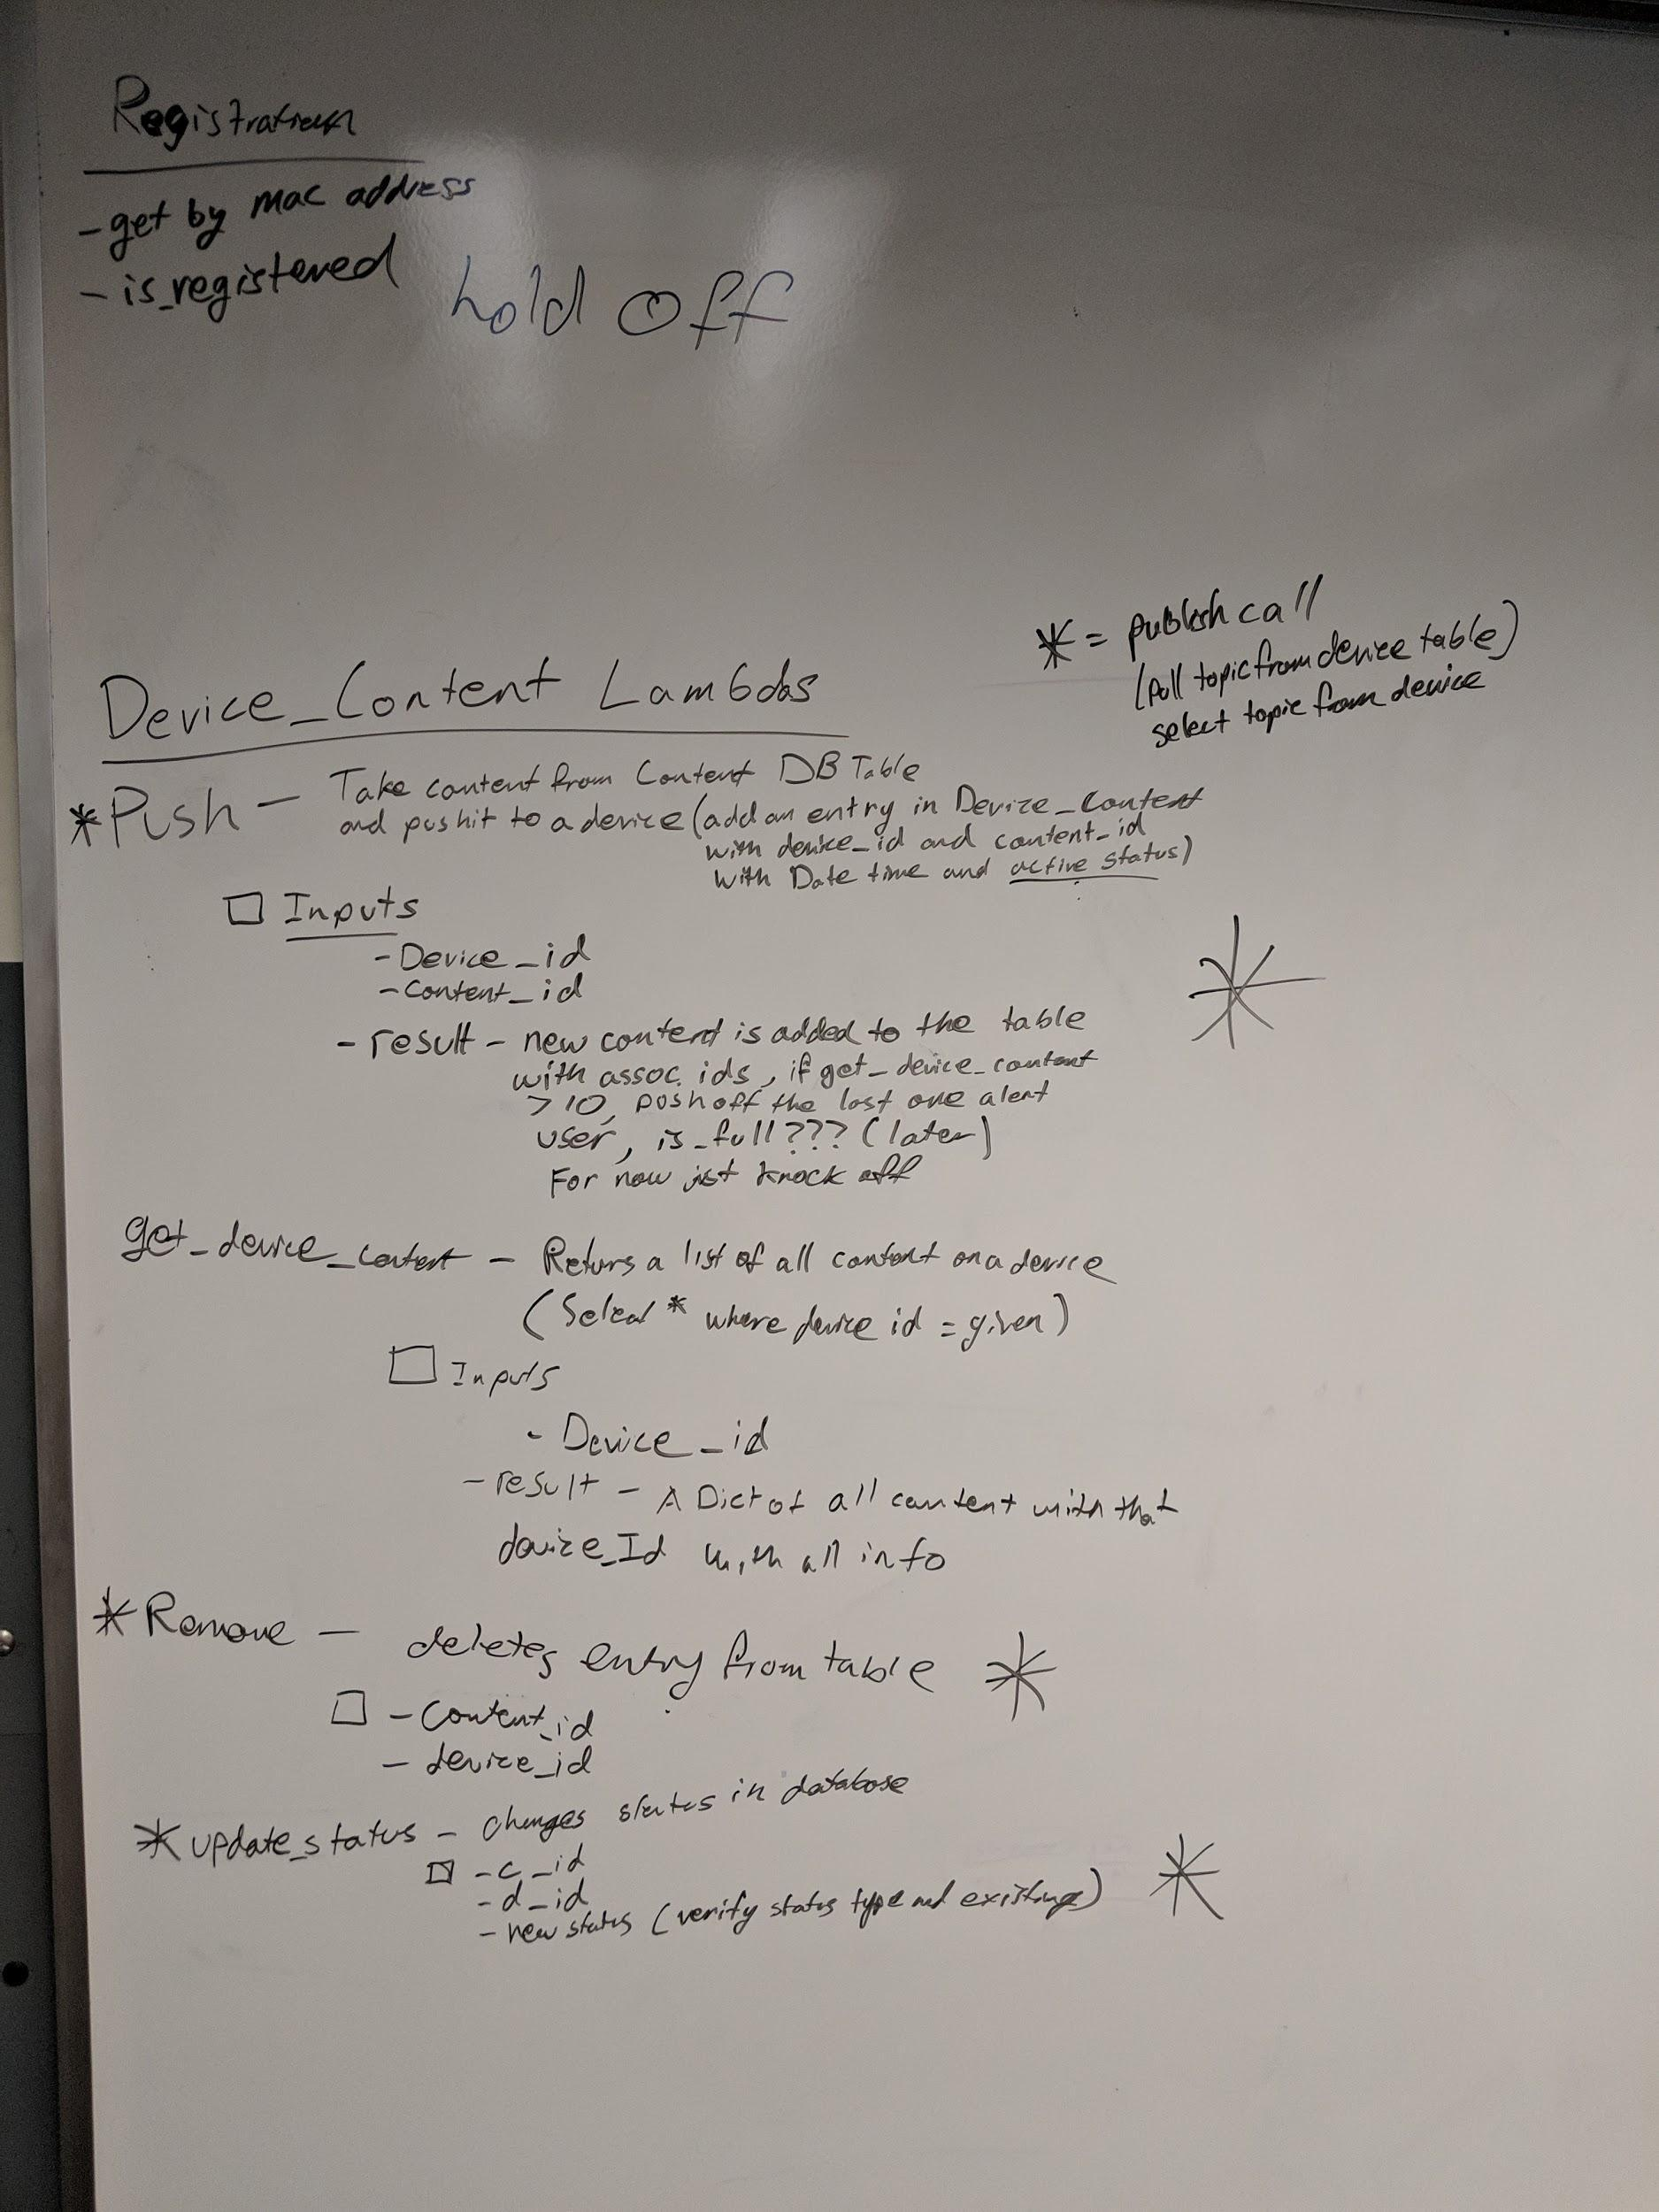 Registration
- get by mac address
- is_registered
hold off
* = publish call
(Pull topic from device table)
select topic from device
Device_Content Lambdas
*Push - Take content from Content DB Table
and push it to a device (add an entry in Device_Content
with device_id and content_id
with Date time and active status)
□ Inputs
- Device_id
- Content_id
*
- result - new content is added to the table
with assoc. ids, if get_device_content
> 10, push off the last one alert
user, is_full??? (later)
For now just knock off
get_device_content - Returs a list of all content on a device
(Select * where device id = given)
□ Inputs
- Device_id
- result - A Dict of all content with that
device_Id with all info
*Remove - deletes entry from table *
□ - Content_id
- device_id
*update_status - changes status in database
□ - c_id
- d_id
- new status (verify status type not existing) *